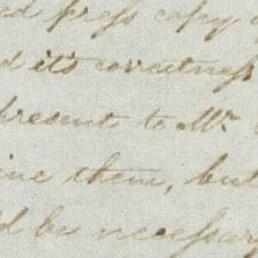 ed press copy
d it's correctness
present to Mr.
ine them, but
d be necessary